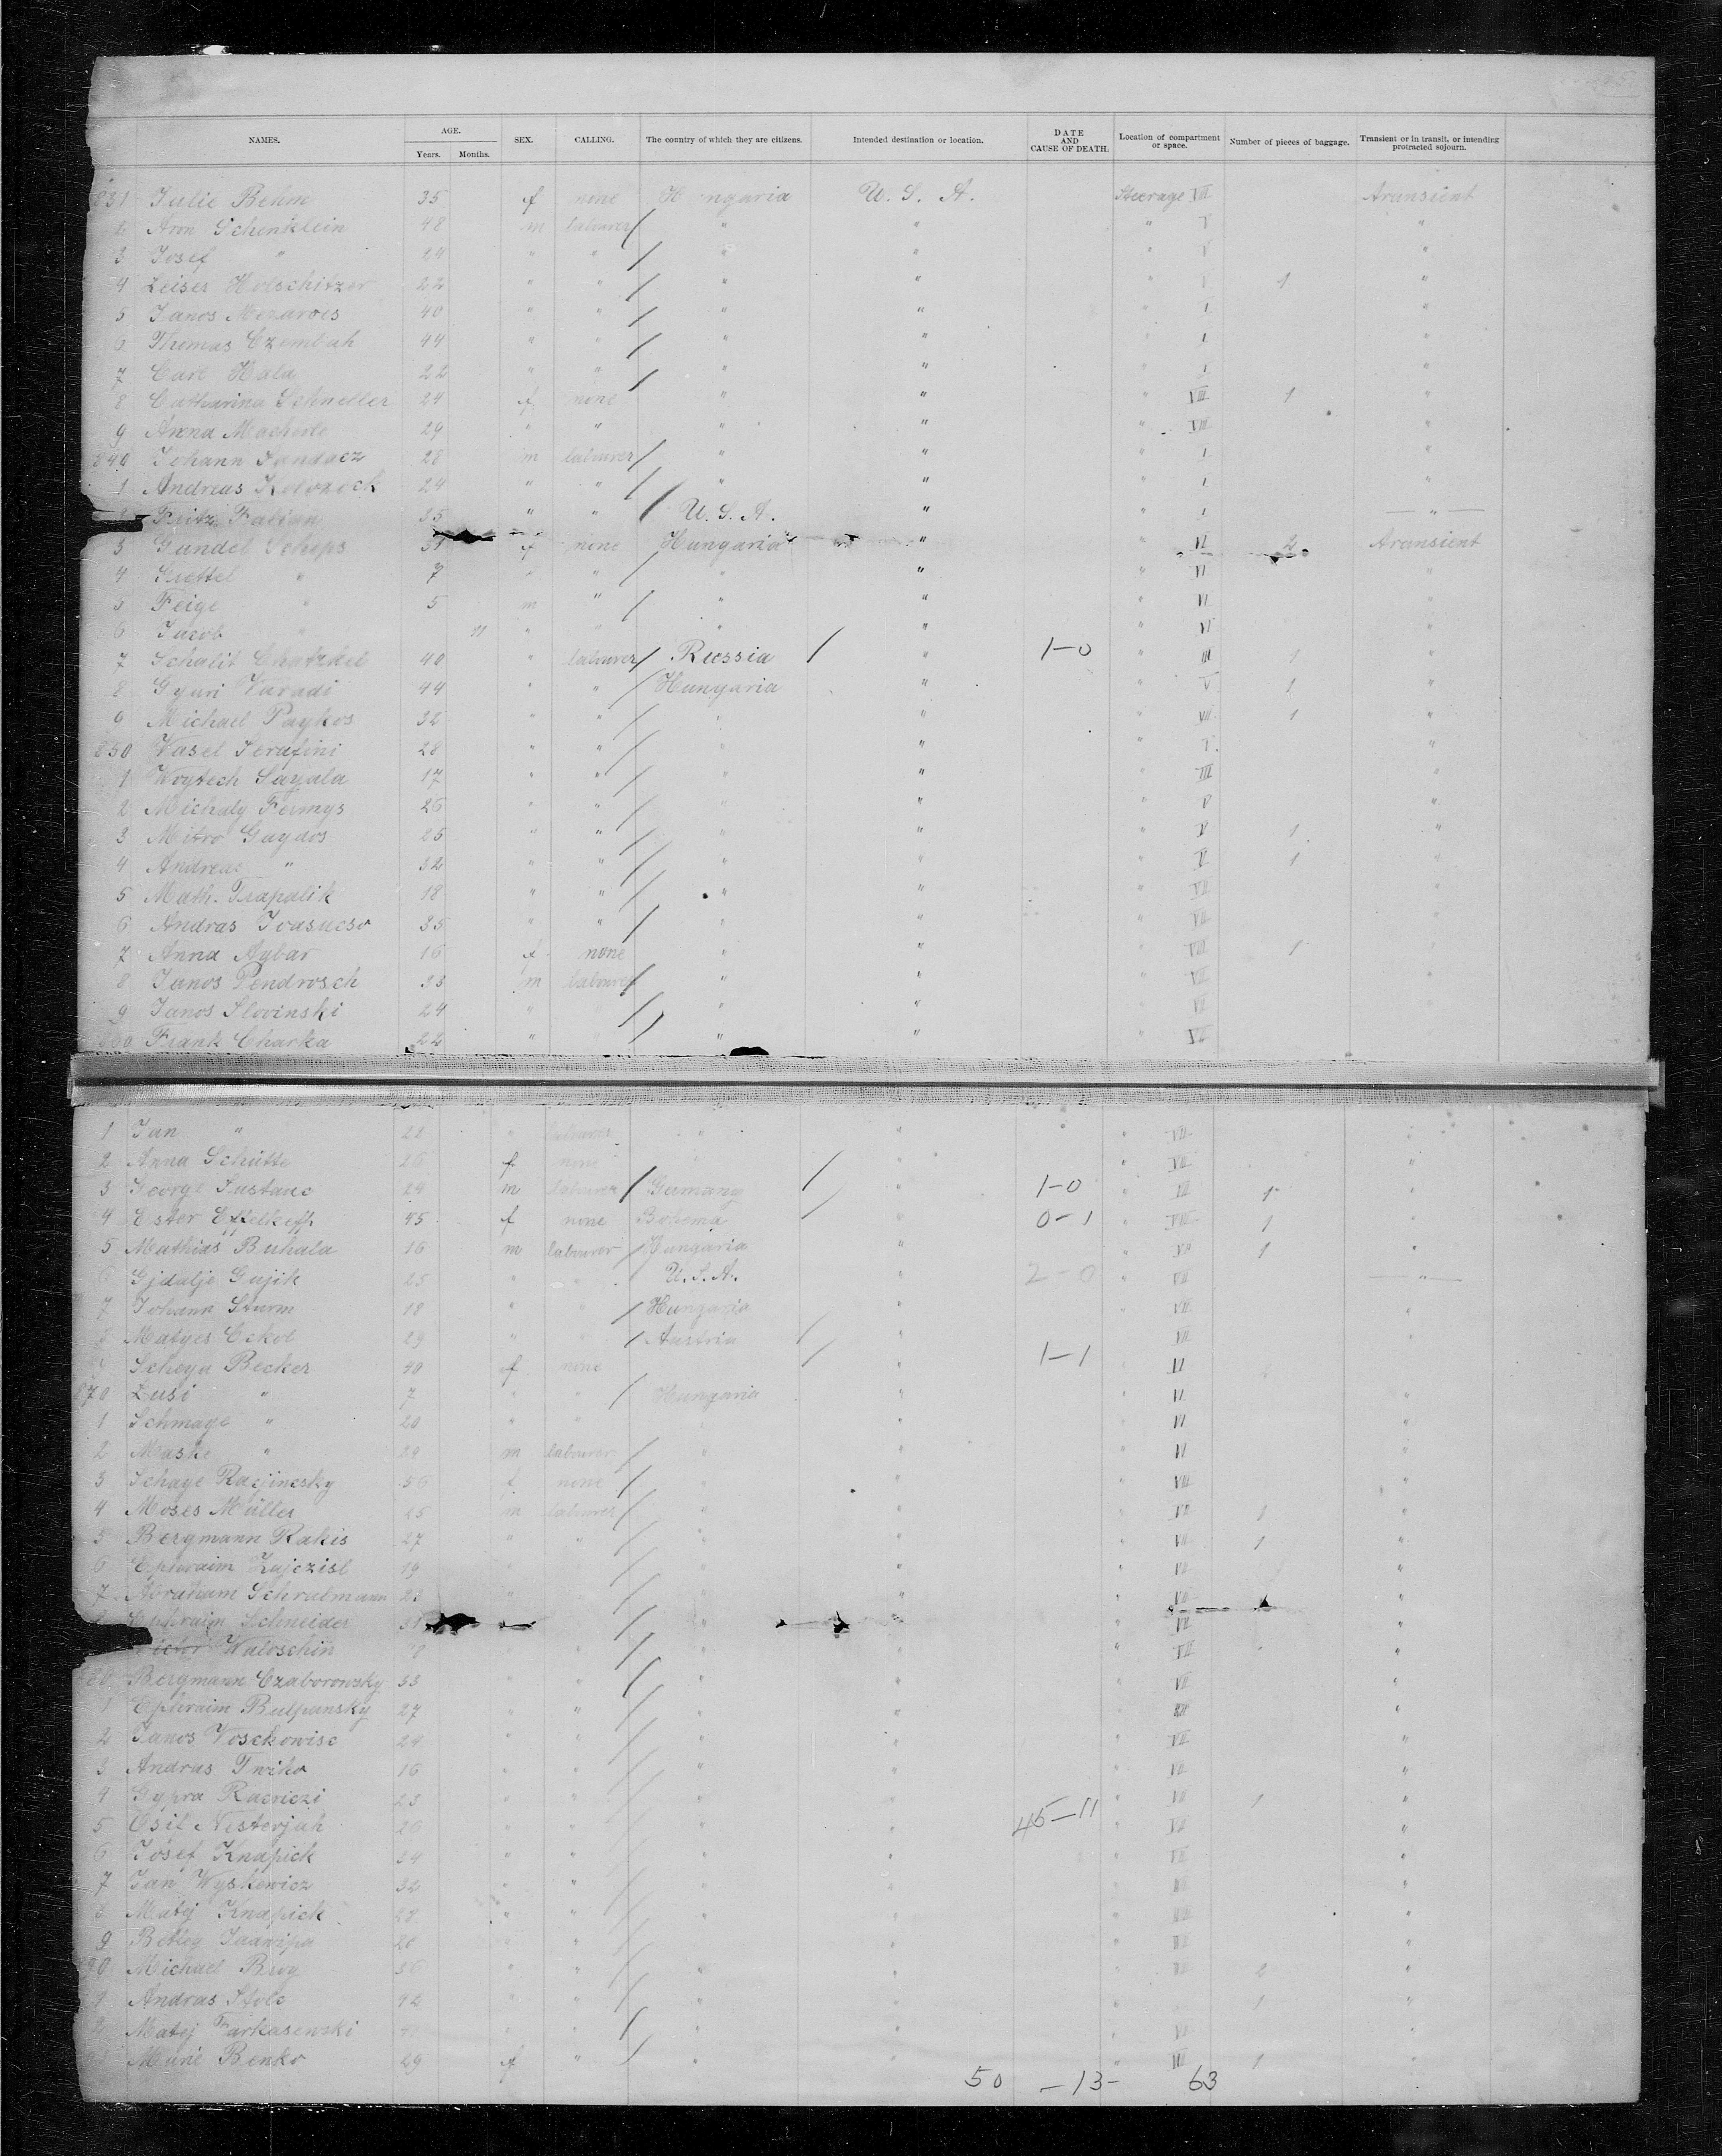 NAMES. AGE. Years. Months. SEX. CALLING. The country of which they are citizens. Intended destination or location. DATE AND CAUSE OF DEATH. Location of compartment or space. Number of pieces of baggage. Transient or in transit, or intending protracted sojourn.
831 Julie Behm 35 f none Hungaria U. S. A. Steerage VII Transient
2 Aron Schönklein 48 m labourer / " " " V "
3 Josef " 24 " " / " " " V "
4 Leiser Holschitzer 22 " " / " " " V 1 "
5 Janos Mezaroes 40 " " / " " " I "
6 Thomas Czembah 44 " " / " " " I "
7 Carl Hala 22 " " / " " " I "
8 Catharina Schneller 24 f none " " " VIII 1 "
9 Anna Macherle 29 " " " " " VIII "
840 Johann Fandacz 28 m labourer / " " " I "
1 Andreas Kolozock 24 " " / " " " I "
Fritz Fabian 35 " " / U. S. A. " " I "
3 Gundel Scheps 31 f none Hungaria " " VI 2 Transient
4 Grettel " 7 " " / " " " VI "
5 Feige " 5 m " / " " " VI "
6 Jacob " 11 " " " " " VI "
7 Schalit Chatzkel 40 " labourer / Russia / " 1-0 " III 1 "
8 Gyuri Varadi 44 " " / Hungaria " " V 1 "
9 Michael Paykos 32 " " / " " " VII 1 "
850 Vasel Serafini 28 " " / " " " V "
1 Woytech Sayala 17 " " / " " " III "
2 Michaly Femys 26 " " / " " " V "
3 Mitro Gaydos 25 " " / " " " V 1 "
4 Andreas " 32 " " / " " " V 1 "
5 Math. Trapalik 18 " " / " " " VII "
6 Andras Ivasucso 35 " " / " " " VII "
7 Anna Aybar 16 f none " " " VIII 1 "
8 Janos Pendrosch 33 m labourer / " " " VII "
9 Janos Slovinski 24 " / " " " VII "
860 Frank Charka 22 " / " " " VII
1 Jan " 28 " labourer " " " VII "
2 Anna Schütte 26 f none " " " VII "
3 George Justano 24 m labourer / Germany / " 1-0 " VII 1 "
4 Ester Effelkeff 45 f none Bohema / " 0-1 " VIII 1
5 Mathias Buhala 16 m labourer / Hungaria " " VII 1 "
6 Gjdalje Gujik 25 " " U. S. A. " 2-0 " VII "
7 Johann Sturm 18 " " / Hungaria " " VII "
8 Matyes Eckol 29 " " / Austria / " VII "
Scheya Becker 40 f none / " 1-1 " VI 2
870 Lusi " 7 " " / Hungaria " " VI "
1 Schmaye " 20 " " " " VI "
2 Maske " 24 m labourer / " " " VI "
3 Schage Racjinesky 36 f none / " " " VII "
4 Moses Müller 25 m labourer / " " " VII 1 "
5 Bergmann Rakis 27 " " / " " " VII 1 "
6 Ephraim Zajczisl 19 " / " " " VII "
7 Abraham Schrulmann 23 " / " " VII "
Ephraim Schneider 31 / " " VII "
Victor Waloschin 18 " / " " " VII "
80 Bergmann Czaborowsky 33 " " / " " " VII "
1 Ephraim Bulpansky 27 " " / " " " VII "
2 Janos Voschowisc 24 " " / " " " VII "
3 Andras Twiko 16 " " / " " " VII "
4 Gypra Racriczi 23 " " / " " " VII 1 "
5 Osil Nesterjak 26 " " / " " 45-11 " VII "
6 Josef Knapick 24 " " / " " " VII "
7 Jan Wyskewicz 32 " " / " " " VII "
8 Matij Knapick 28 " " / " " " VII "
9 Betleg Jaanipa 20 " " / " " " VII "
90 Michael Brog 36 " " / " " " VII 2 "
1 Andras Stole 42 " " / " " " 1 "
2 Matij Farkasewski " " / " " " VI "
Marie Benko 29 f " / " " " III 1 "
50 -13- 63